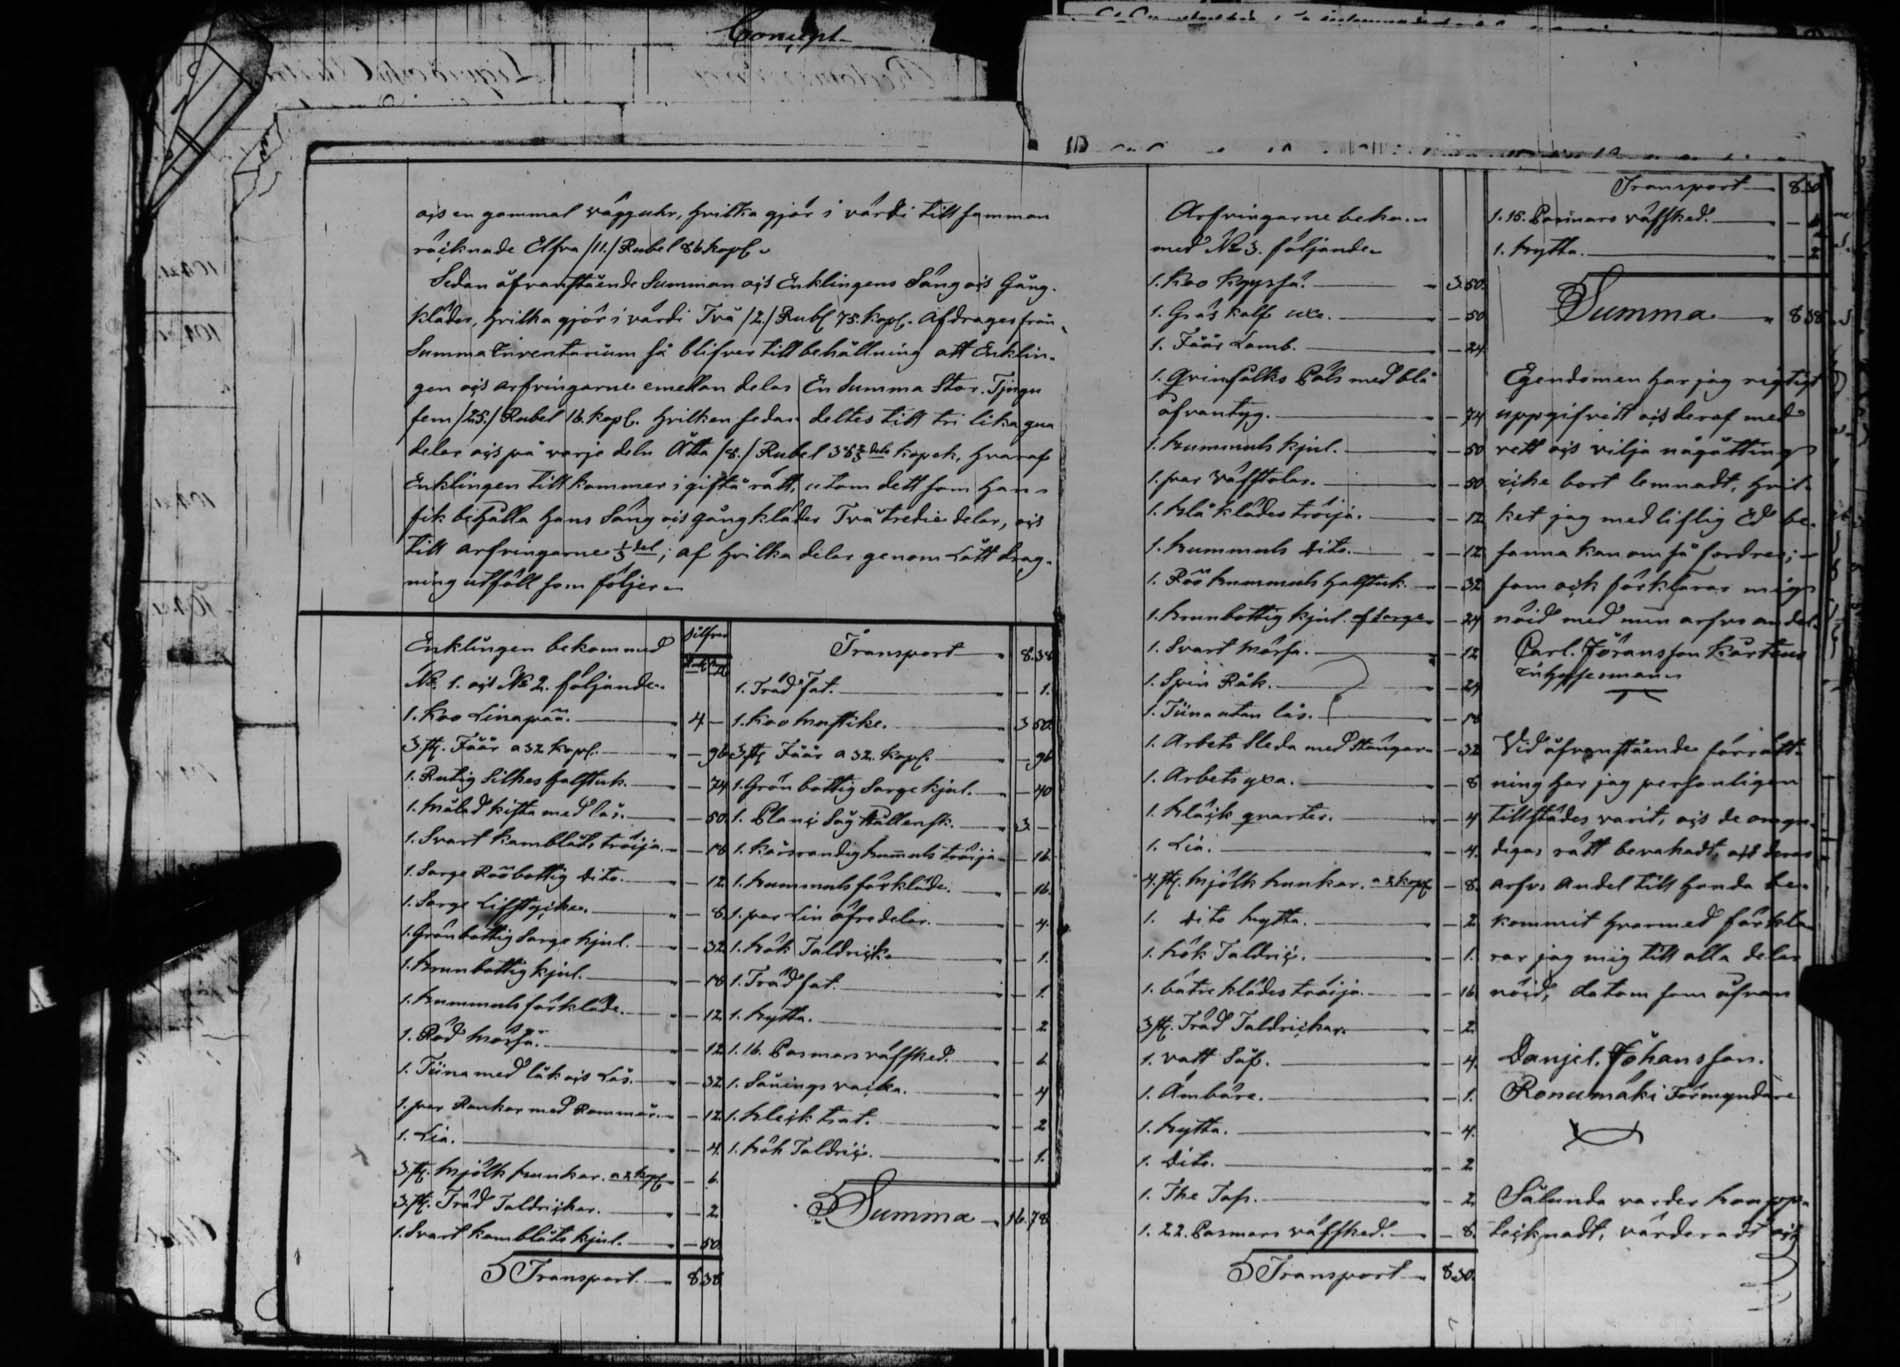 Concept
ojs en gammal vägguhr, hvilka gjör i värdi till samman
räcknade Elfva /11./ Rubel 86 kopf.
Sedan åfvanstående Summan ojs Enklingens Säng ojs Gång-
kläder, hvilka gjör i värdi Två /2./ Rubl 75. kopf. Afdrages från
Summa Inventarium så blifver till behållning att Enklin-
gen ojs arfvingarne emellan delas En Summa Stor. Tjugu
fem /25./ Rubel 16. kopf. hvilken sedan deltes till tri lika
delar ojs på varje deln Åtta /8./ Rubel 38 2/3 dels kopek, hvaraf
Enklingen till kommer i giftä rätt, utom dett som han
fik behålla hans Säng ojs gångkläder Två tredie delar, ojs
till arfvingarne 1/3 del; af hvilka delar genom Lått drag-
ning utföll som följer
Enklingen bekom med
№ 1. ojs № 2. följande.
Silfver
1. Koo Linapää. 4 –
3 st. Fåår a 32 kopf. – 96
1. Rutig Silkes halsduk. – 74
1. Målad kista med lås. – 50
1. Svart kamblåts tröija. – 18
1. Sarge Rödbottig Dito. – 12
1. Sarge Lifstycke. – 8
1. Grönbottig Sarge kjul. – 32
1. brunbottig kjul. – 18
1. bummuls förkläde. – 12
1. Röd Mössa. – 12
1. Tiina med låk ojs Lås. – 32
1. par Rankar med Rammar. – 12
1. Lia. – 4
3 st. Mjölk bunkar. a 2 kopf – 6
3 st. Träd Taldrickar. – 2
1. Svart kamblåts kjul. – 50
Transport 8 38
Transport 8. 38
1. Träd fat. – 1.
1. Koo Mustike. 3 50
3 st. Fåår a 32. kopf. – 96
1. Grön bottig Sarge kjul. – 40
3. –
1. bummuls tröija – 16
1. bummuls förkläde. – 16.
1. par Lin öfredelar. – 4.
1. Taldrick. – 1.
1. Träd fat. – 1.
1. bytta. – 2
1. 16. Pasmars väfsked. – 6
1. Såningsvacka. – 4
– 2
1. Taldrick. – 1.
Summa 16. 78
Arfvingarne bekom
med № 3. följande
1. Koo 3. 50.
1. Grås kalf – 50
1. Fåår Lamb. – 24
1. Qvinfolks Päls med blå
öfvantyg. – 74
1. bummuls kjul. – 50
1. par väfstolar. – 50
1. blå klädes tröija. – 12
1. bummuls Dito. – 12
1. Röd bummuls halsduk. – 32
1. brunbottig kjul af Sarge – 24
1. Svart Mössa. – 12
1. Spin Råk. – 24
1. Tiina utan lås. – 18
1. Arbets Sleda med Stänger – 32
1. Arbets yxa. – 8
– 4
1. Lia. – 4.
4 st. Mjölk bunkar. a 2 kopf – 8.
1. Dito bytta. – 2
1. Taldrick. – 1.
1. bätre klädes tröija. – 16
3 st. Träd Taldrickar. – 2
1. – 4.
1. Ämbare. – 1.
1. bytta. – 4.
1. Dito. – 2
1. – 2
1. 22. Pasmars väfsked. – 8.
Transport 8 30.
Transport 8. 30
1. 15. Pasmars väfsked.
1. bytta. – 2
Summa 8 38
Egendomen har jag rigtigt
uppgifvitt ojs deraf med
vett ojs vilja någåtting
icke bort lemnadt, hvil-
ket jag med liflig Ed be-
sanna kan om så fordres;
som ock förklarar mig
nöid med min arfvs andel.
Carl. Jöransson
Inhysesman
Vid åfvanstående förrätt-
ning har jag personligen
tillstädes varit, ojs de omyn-
digas rätt bevakadt, att deras
arfvs Andel till handa be-
kommit hvarmed förkla-
rar jag mig till alla delar
nöid, datom som åfvan
Danjel. Johansson.
Ronumäki Förmyndare
Sålunda varder
tecknadt, värderadt ojs